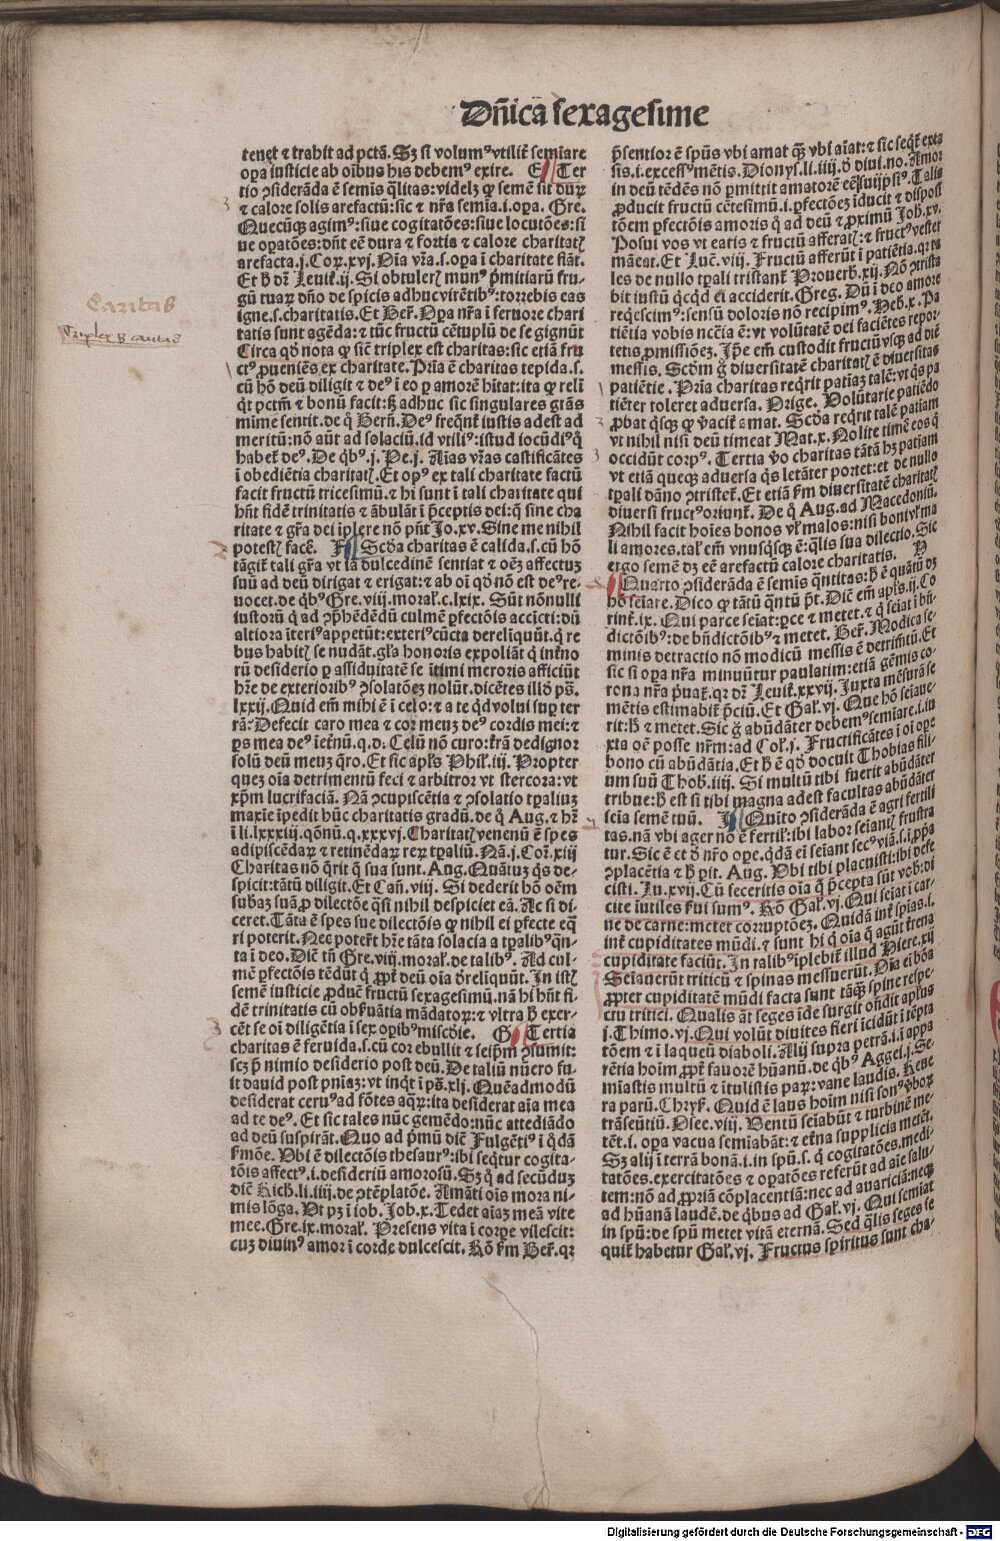 Dn̄icā sexagesime
tenet ⁊ trahit ad pctā. Sꝫ si volumꝰ vtilit̄ semīare
oꝑa iusticie ab oībus his debemꝰ exire. E Ter
tio ↄsiderāda ē semis q̄litas: videlꝫ ꝙ semē sit duꝝ
⁊ calore solis arefactū: sic ⁊ nr̄a semīa .i. oꝑa. Gre.
Quecūqꝫ agimꝰ: siue cogitatōes: siue locutōes: si
ue oꝑatōes: dn̄t eē dura ⁊ fortia ⁊ calore charitatꝭ
arefacta. j. Coꝝ. xvj. Oīa vr̄a .s. oꝑa ī charitate fiāt.
Et ħ dr̄ Leuit̄. ij. Si obtulerꝭ munꝰ p̄mitiarū fru
gū tuaꝝ dn̄o de spicis adhuc virētibꝰ: torrebis eas
igne .s. charitatis. Et Ber̄. Oꝑa nr̄a ī feruore chari
tatis sunt agēda: ⁊ tūc fructū cētuplū de se gignūt
Circa qđ nota ꝙ sic̄ triplex est charitas: sic etiā fru
ctꝰ ꝓueniēs ex charitate. Prīa ē charitas tepida .s.
cū hō deū diligit ⁊ deꝰ ī eo ꝑ amorē hītat: ita ꝙ reli
q̄t pctm̄ ⁊ bonū facit: ꝫ adhuc sic singulares gr̄as
mīme sentit. de q̊ Bern̄. Deꝰ freq̄nt̄ iustis adest ad
meritū: nō aūt ad solaciū. id vtiliꝰ: istud iocūdiꝰ q̊
habet̄ deꝰ. De qbꝰ. j. Pe. j. Aīas vr̄as castificātes
ī obediētia charitatꝭ. Et opꝰ ex tali charitate factū
facit fructū tricesimū. ⁊ hi sunt ī tali charitate qui
hn̄t fidē trinitatis ⁊ ābulāt ī p̄ceptis dei: q̄ sine cha
ritate ⁊ gr̄a dei īplere nō pn̄t Jo. xv. Sine me nihil
potestꝭ facē. F Scđa charitas ē calida .s. cū hō
tāgit̄ tali gr̄a vt iā dulcedinē sentiat ⁊ oēꝫ affectuꝫ
suū ad deū dirigat ⁊ erigat: ⁊ ab oī qđ nō est deꝰ re-
uocet. de qbꝰ Gre. viij. moral̄. c. lxix. Sūt nōnulli
iustorū q̄ ad ↄp̄hēdēdū culmē ꝑfectōis accīcti: dū
altiora īteriꝰ appetūt: exteriꝰ cūcta derelīquūt. q̄ re
bus habitꝭ se nudāt. gl̄ia honoris expoliāt q̄ int̄no
rū desiderio ꝑ assiduitatē se ītimi meroris afficiūt
hr̄e de exterioribꝰ ↄsolatōeꝫ nolūt. dicētes illđ ps̄.
lxxij. Quid em̄ mihi ē ī celo: ⁊ a te qđ volui suꝑ ter
rā: Defecit caro mea ⁊ cor meuꝫ deꝰ cordis mei: ⁊
ꝑs mea deꝰ īet̄nū. q. d. Celū nō curo: t̄rā dedignor
solū deū meuꝫ q̄ro. Et sic apl̄s Phil̄. iij. Propter
queꝫ oīa detrimentū feci ⁊ arbitror vt stercora: vt
xp̄m lucrifaciā. Nā ↄcupiscētia ⁊ ↄsolatio tꝑaliuꝫ
maxīe īpedit hūc charitatis gradū. de q̊ Aug. ⁊ hr̄
ī li. lxxxiij. qōnū. q. xxxvj. Charitatꝭ venenū ē spes
adipiscēdaꝝ ⁊ retinēdaꝝ reꝝ tꝑaliū. Nā. j. Cor̄. xiij
Charitas nō q̄rit q̄ sua sunt. Aug. Quātuꝫ qs de-
spicit: tātū diligit. Et Can̄. viij. Si dederit hō oēm
subaꝫ suā ꝓ dilectōe q̄si nihil despiciet eā. Ac si di-
ceret. Tāta ē spes sue dilectōis ꝙ nihil ei ꝑfecte eq̄
ri poterit. Nec poter̄t hr̄e tāta solacia a tꝑalibꝰ q̄n-
ta ī deo. Dic̄ tn̄ Gre. viij. moral̄. de talibꝰ. Ad cul-
mē ꝑfectōis tēdūt q̄ ꝓpt̄ deū oīa đreliquūt. In istꝭ
semē iusticie ꝓduc̄ fructū sexagesimū. nā hi hn̄t fi-
dē trinitatis cū obẜuātia mādatoꝝ: ⁊ vltra ħ exer-
cēt se oī diligētia ī sex oꝑibꝰ miscđie. G Tertia
charitas ē feruida .s. cū cor ebullit ⁊ seip̄m ↄsumit:
scꝫ p̄ nimio desiderio post deū. De taliū nūero fu-
it dauid post pn̄iaꝫ: vt inq̄t ī ps̄. xlj. Quēadmodū
desiderat ceruꝰ ad fōtes aq̄ꝝ: ita desiderat aīa mea
ad te deꝰ. Et sic tales nūc gemēdo: nūc attediādo
ad deū suspirāt. Quo ad p̄mū dic̄ Fulgētiꝰ ī q̄dā
ẜmōe. Vbi ē dilectōis thesaurꝰ: ibi seq̄tur cogita-
tōis affectꝰ .i. desideriū amorosū. Sꝫ q̊ ad secūduꝫ
dic̄ Rich̄. li. iiij. de ↄtēplatōe. Amāti oīs mora ni-
mis lōga. Vt pꝫ ī iob. Job. x. Tedet aīaꝫ meā vite
mee. Gre. ix. moral̄. Presens vita ī corꝑe vilescit:
cuꝫ diuinꝰ amor ī corde dulcescit. Rō ẜm Ber̄. qꝛ
p̄sentior ē spūs vbi amat qꝫ vbi aīat: ⁊ sic seq̄t̄ exta
sis .i. excessꝰ mētis. Dionys. li. iiij. đ diui. no. Amor
in deū tēdēs nō ꝑmittit amatorē eē suijpsiꝰ. Talis
ꝓducit fructū cētesimū .i. ꝑfectōeꝫ īducit ⁊ dispost
tōem ꝑfectōis amoris q̄ ad deū ⁊ ꝓximū Joh̄. xv.
Posui vos vt eatis ⁊ fructū afferatꝭ: ⁊ fructꝰ vester
māeat. Et Luc̄. viij. Fructū afferūt ī patiētia. qꝛ ta
les de nullo tꝑali tristant̄ Prouerb̄. xij. Nō ↄtrista
bit iustū qcqđ ei acciderit. Greg. Dū ī deo amore
reqescimꝰ: sensū doloris nō recipimꝰ. Heb̄. x. Pa
tiētia vobis nccīa ē: vt volūtatē dei faciētes repor-
tetis ꝓmissiōeꝫ. Ip̄e em̄ custodit fructū vsqꝫ ad diē
messis. Scđm ḡ diuersitatē charitatꝭ ē diuersitas
patiētie. Prīa charitas reqrit patīaꝫ talē: vt qs pa
tiēter toleret aduersa. Orige. Volūtarie patiēdo
ꝓbat qsqꝫ ꝙ vacit̄ amat. Scđa reqrit talē patiam
vt nihil nisi deū timeat Mat. x. Nolite timē eos q̄
occidūt corpꝰ. Tertia v̄o charitas tātā hꝫ patiam
vt etiā queqꝫ aduersa qs letāter portet: et de nullo
tꝑali dāno ↄtristet̄. Et etiā ẜm diuersitatē charitatꝭ
diuersi fructꝰ oriunt̄. De q̊ Aug. ad Macedoniū.
Nihil facit hoīes bonos vl̄ malos: nisi boni vl̄ ma
li amores. tal̄ em̄ vnusqsqꝫ ē: q̄lis sua dilectio. Sic
ergo semē dꝫ eē arefactū calore charitatis. H
Quarto ↄsiderāda ē semis q̄ntitas: ħ ē quātū dꝫ
hō seīare. Dico ꝙ tātū q̄ntū p̄t. Dic̄ em̄ apl̄s. ij. Co
rint̄. ix. Qui parce seīat: ꝑce ⁊ metet. ⁊ q̄ seīat ī bn̄
dictōibꝰ: de bn̄dictōibꝰ ⁊ metet. Ber̄. Modica se-
minis detractio nō modicū messis ē detrimtū. Et
sic si oꝑa nr̄a minuūtur paulatim: etiā gēmis co-
rona nr̄a p̄uat̄. qꝛ dr̄ Leuit̄. xxvij. Juxta mēsurā se
mētis estimabit̄ p̄ciū. Et Gal̄. vj. Que hō seīaue-
rit: ħ ⁊ metet. Sic ḡ abūdāter debemꝰ semīare .i. iu
xta oē posse nr̄m: ad Col̄. j. Fructificātes ī oī oꝑe
bono cū abūdātia. Et ħ ē qđ docuit Thobias fili-
um suū Thob̄. iiij. Si multū tibi fuerit abūdāter
tribue: ħ est si tibi magna adest facultas abūdāter
seīa semē tuū. J Quīto ↄsiderāda ē agri fertili
tas. nā vbi ager nō ē fertil̄: ibi labor seīantꝭ frustra
tur. Sic ē et đ nr̄o oꝑe. q̄dā ei seīant secꝰ viā .s. i. ꝓp̄a
ↄplacētia ⁊ ħ pit. Aug. Vbi tibi placuisti: ibi defe
cisti. Ju. xvij. Cū feceritis oīa q̄ p̄cepta sūt vob̄: di
cite īutiles ẜui sumꝰ. Rō Gal̄. vj. Qui seīat ī car-
ne de carne: metet corruptōeꝫ. Quidā int̄ spīas .i.
int̄ cupiditates mūdi. ⁊ sunt hi q̄ oīa q̄ agūt t̄rena
cupiditate faciūt. In talibꝰ īplebit̄ illud Hiere. xij
Seīauerūt triticū ⁊ spinas messuerūt. Oīa ei bōa
ꝓpter cupiditatē mūdi facta sunt tāqꝫ spine respe-
ctu tritici. Qualis āt seges īde surgit oñdit apl̄us
j. Thimo. vj. Qui volūt diuites fieri īcidūt ī tēpta
tōem ⁊ ī laqueū diaboli. Alij supra petrā .i. ī appa
rētia hoīm ꝓpt̄ fauorē hūanū. de qbꝰ Aggei. j. Se-
mīastis multū ⁊ ītulistis paꝝ: vane laudis. Rene
ra parū. Chryẜ. Quid ē laus hoīm nisi sonꝰ v̄boꝝ
trāseūtiū. Osee. viij. Ventū seīabūt ⁊ turbinē me-
tēt. i. opa vacua semīabāt: ⁊ et̄na supplicia metēt.
Sꝫ alij ī terrā bonā .i. in spū .s. q̄ cogitatōes. medi-
tatōes. exercitatōes ⁊ oꝑatōes referūt ad aīe salu-
tem: nō ad ꝓpriā cōplacentiā: nec ad auariciā: neqꝫ
ad hūanā laudē. de qbus ad Gal̄. vj. Qui semīat
in spū: de spū metet vitā eternā. Sed q̄lis seges se
quit̄ habetur Gal̄. vj. Fructus spiritus sunt cha-
Caritas
Triplex ē caritas
Digitalisierung gefördert durch die Deutsche Forschungsgemeinschaft - DFG